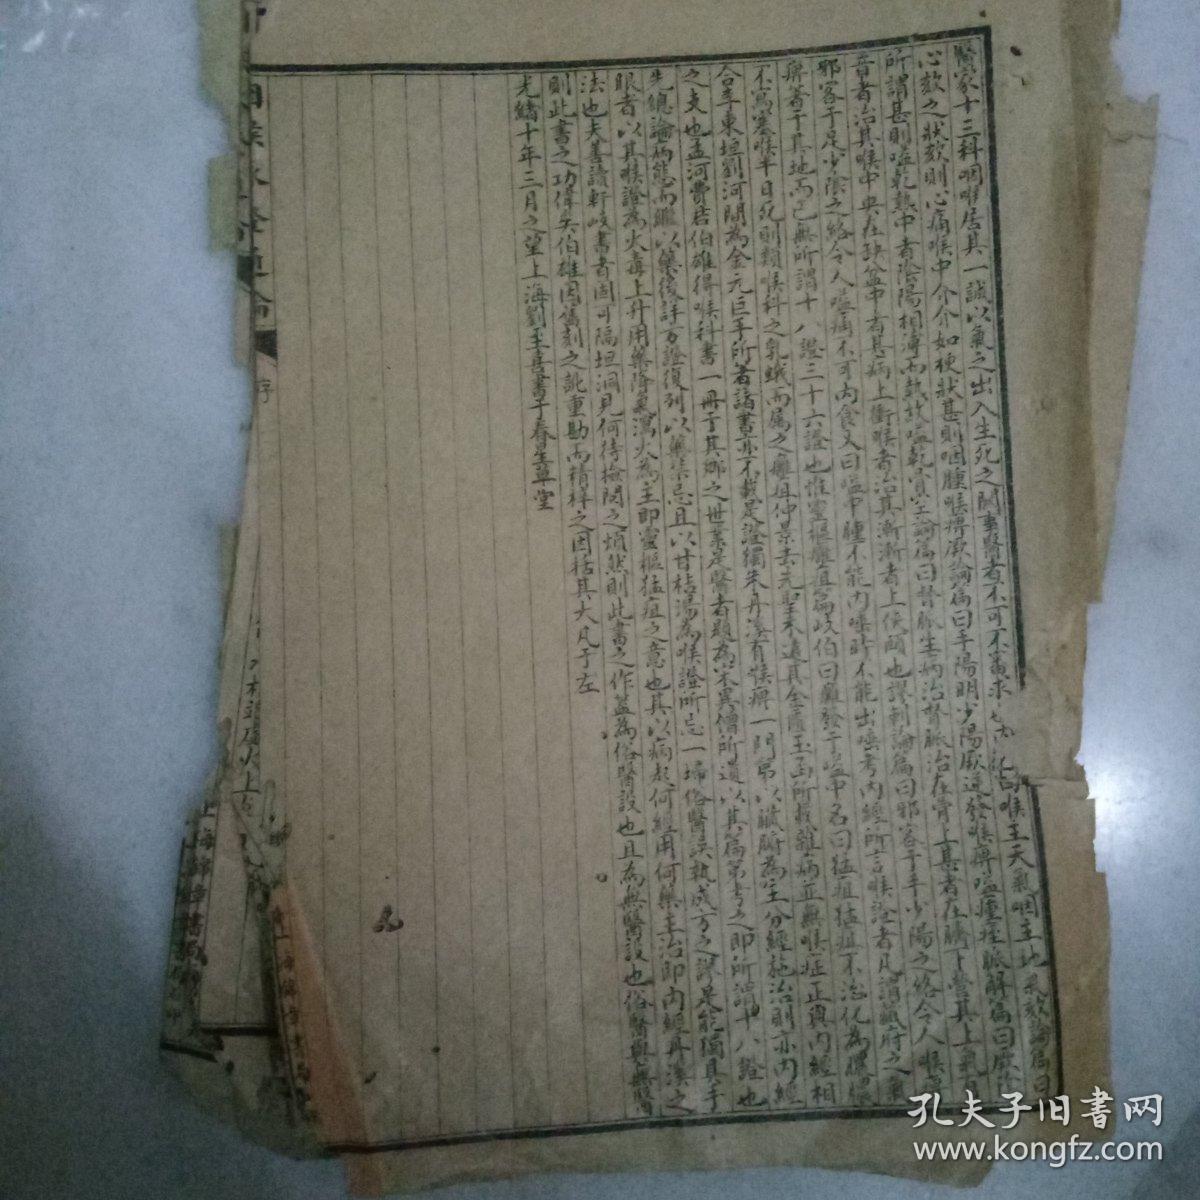 醫家十三科咽喉居其一誠以氣之出入生死之關業醫者不可不蓄求 喉主天氣咽主地氣欬論篇曰
心欬之狀欬則心痛喉中介介如梗狀甚則咽腫喉痹厥論篇曰手陽明少陽厥逆發喉痹嗌腫痓脈解篇曰厥陰
所謂甚則嗌乾熱中者陰陽相薄而熱故嗌乾骨空論篇曰督脈生病治督脈治在骨上甚者在臍下營其上氣有
音者治其喉中央在缺盆中者其病上衝喉者治其漸漸者上俠頤也謬刺論篇曰邪客于手少陽之絡令人喉痹
邪客于足少陰之絡令人嗌痛不可內食又曰嗌中腫不能內唾時不能出唾考內經所言喉證者凡謂藏府之氣
痹著于其地而已無所謂十八證三十六證也惟靈樞癰疽篇岐伯曰癰發于嗌中名曰猛疽猛疽不治化為膿膿
不寫塞喉半日死則類喉科之乳蛾而屬之癰疽仲景去先聖未遠其金匱玉函所載雜病並無喉症正與內經相
合李東垣劉河間為金元巨手所著諸書亦不載是證獨朱丹溪有喉痹一門第以臟腑為主分經施治則亦內經
之支也孟河費君伯雄得喉科書一冊于其鄉之世業是醫者題為宋異僧所遺以其篇第考之即所謂十八證也
先總論病態而繼以藥後詳方證復列以藥禁忌且以甘桔湯為喉證所忌一埽俗醫誤執成方之謬是能獨具手
眼者以其喉證為火毒上升用藥降氣瀉火為主即靈樞猛疽之意也其以病起何經用何藥主治即內經丹溪之
法也夫善讀軒岐書者固可隔垣洞見何待檢閱之煩然則此書之作蓋為俗醫設也且為無醫設也俗醫與無醫
則此書之功偉矣伯雄因舊刻之訛重勘而精梓之因括其大凡于左
光緒十年三月之望上海劉至喜書于春生草堂
序
上海錦章書局
孔夫子旧書网
www.kongfz.com